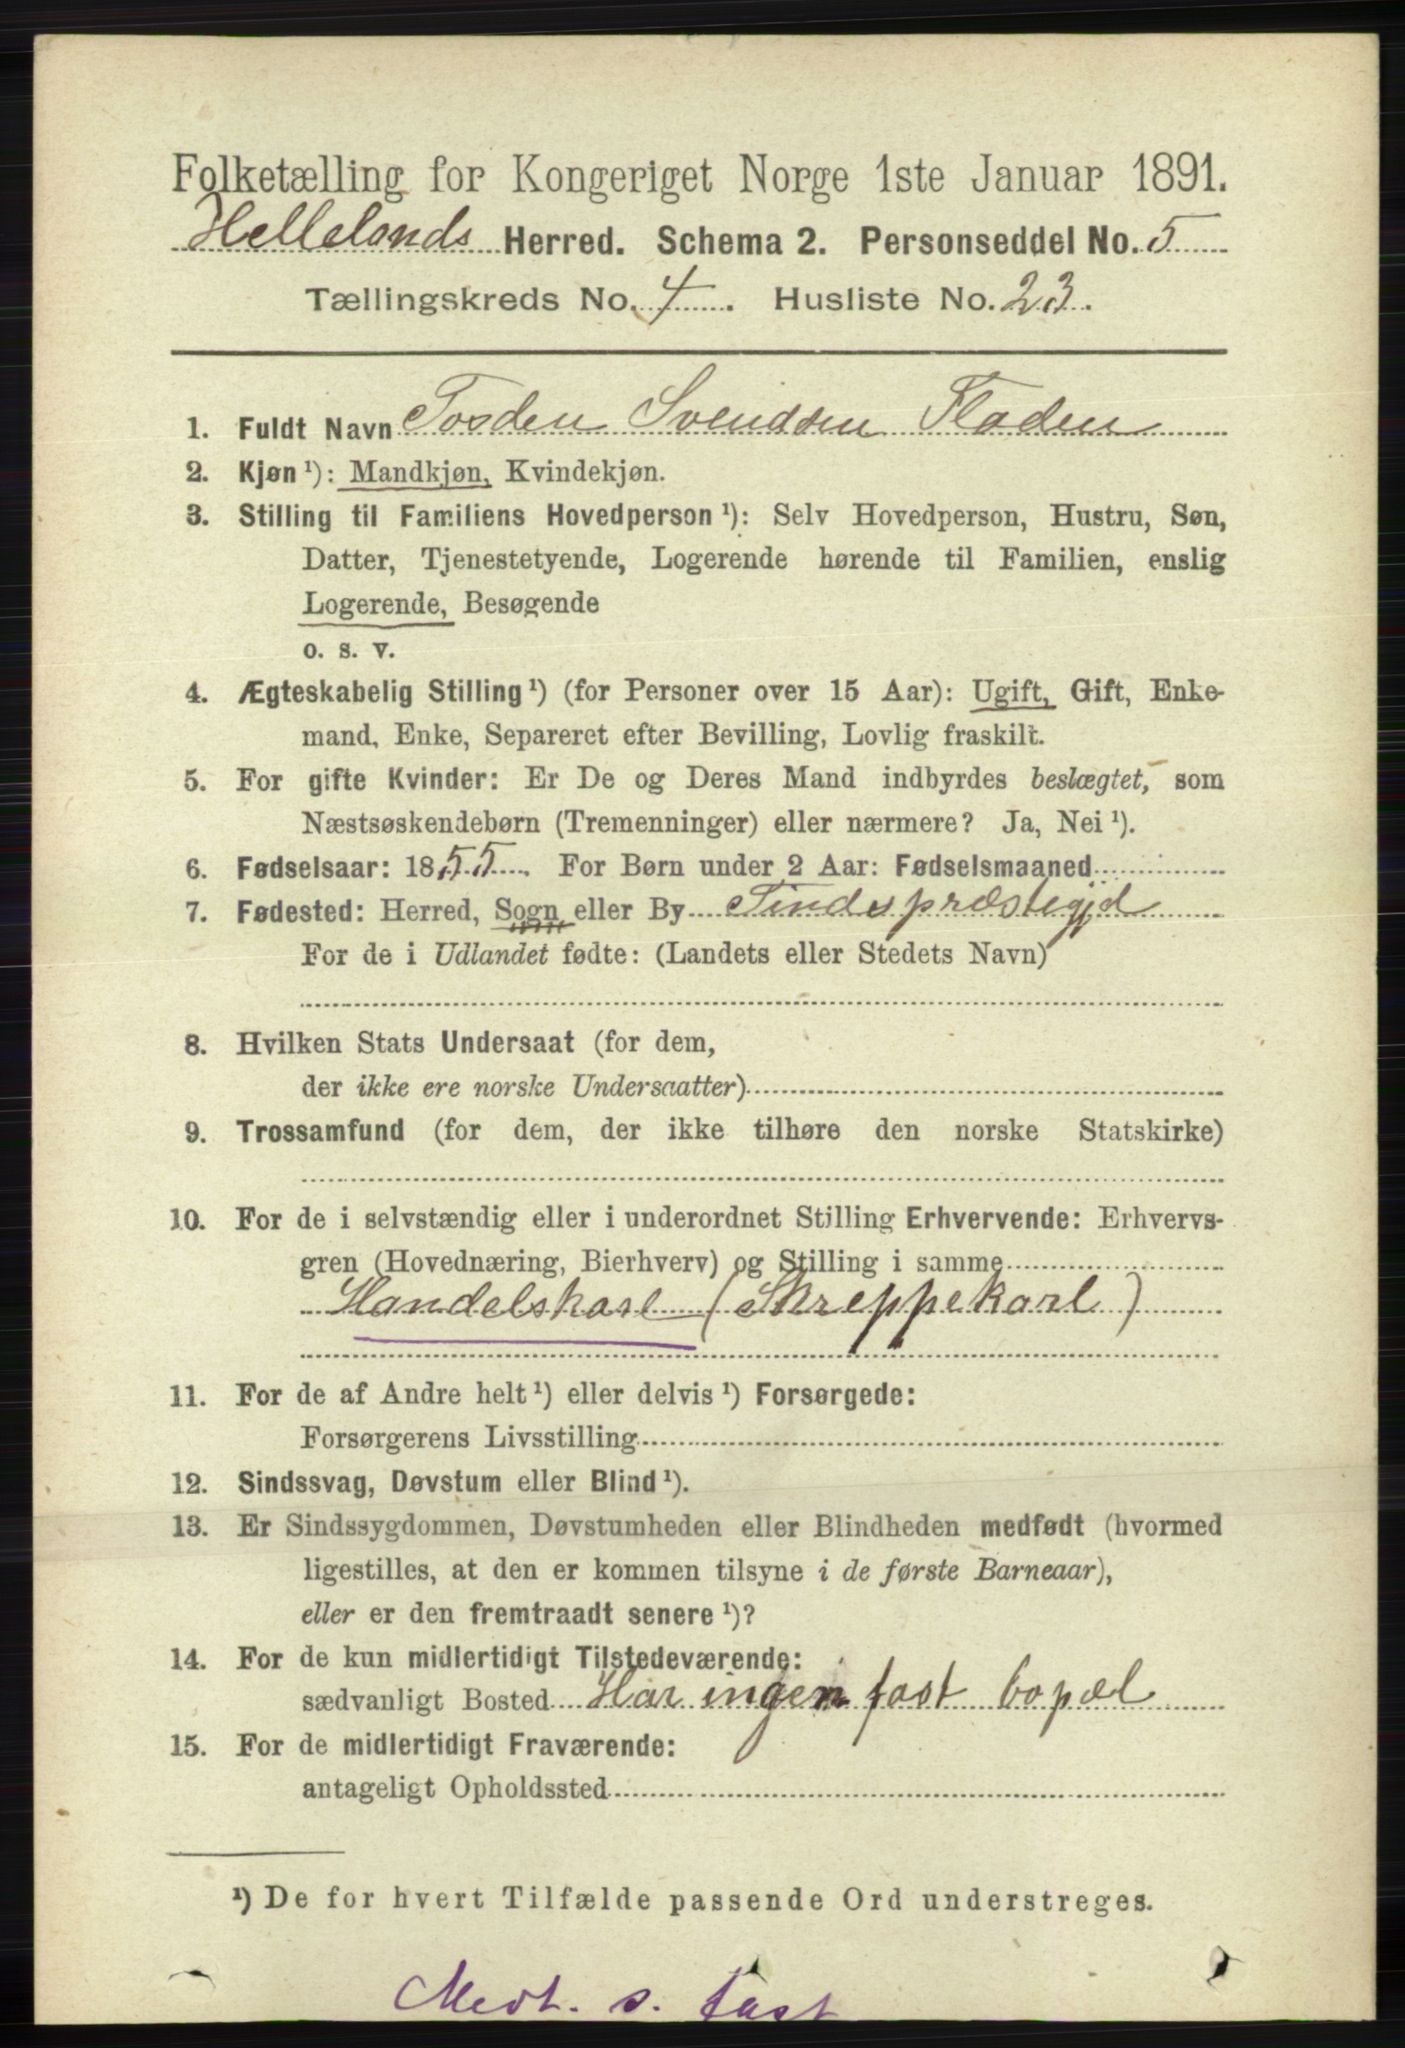 Folketælling for Kongeriget Norge 1ste Januar 1891.
Hellelands Herred. Schema 2. Personseddel No. 5
Tællingskreds No. 4. Husliste No. 23.
1. Fuldt Navn Tosden Svendsen Floden
2. Kjøn ¹): Mandkjøn, Kvindekjøn.
3. Stilling til Familiens Hovedperson ¹): Selv Hovedperson, Hustru, Søn,
Datter, Tjenestetyende, Logerende hørende til Familien, enslig
Logerende, Besøgende
o. s. v.
4. Ægteskabelig Stilling ¹) (for Personer over 15 Aar): Ugift, Gift, Enke-
mand, Enke, Separeret efter Bevilling, Lovlig fraskilt.
5. For gifte Kvinder: Er De og Deres Mand indbyrdes beslægtet, som
Næstsøskendebørn (Tremenninger) eller nærmere? Ja, Nei ¹).
6. Fødselsaar: 1855. For Børn under 2 Aar: Fødselsmaaned
7. Fødested: Herred, Sogn, eller By Tindspræstegjd
For de i Udlandet fødte: (Landets eller Stedets Navn)
8. Hvilken Stats Undersaat (for dem,
der ikke ere norske Undersaatter)
9. Trossamfund (for dem, der ikke tilhøre den norske Statskirke)
10. For de i selvstændig eller i underordnet Stilling Erhvervende: Erhvervs-
gren (Hovednæring, Bierhverv) og Stilling i samme
Handelskarl (Skreppekarl)
11. For de af Andre helt ¹) eller delvis ¹) Forsørgede:
Forsørgerens Livsstilling
12. Sindssvag, Døvstum eller Blind ¹).
13. Er Sindssygdommen, Døvstumheden eller Blindheden medfødt (hvormed
ligestilles, at den er kommen tilsyne i de første Barneaar),
eller er den fremtraadt senere ¹)?
14. For de kun midlertidigt Tilstedeværende:
sædvanligt Bosted Har ingen fast bopæl
15. For de midlertidigt Fraværende:
antageligt Opholdssted
¹) De for hvert Tilfælde passende Ord understreges.
Medt. s. fast